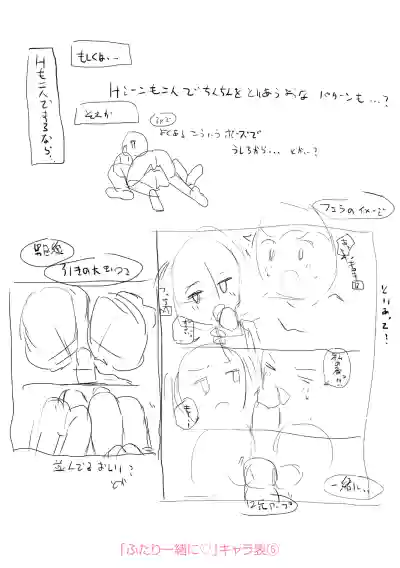 もしくは…
Hも二人でするなら…
Hシーンも二人でちんちんをとりあうような パターンも…?
それか
よくある こういう ポーズで
うしろから… とか…?
フェラのイメージ
引きの大きいコマ
とりあって?
並んでるおしり?
とか
一緒に…
口元アップ
「ふたり一緒に♡」キャラ表⑤